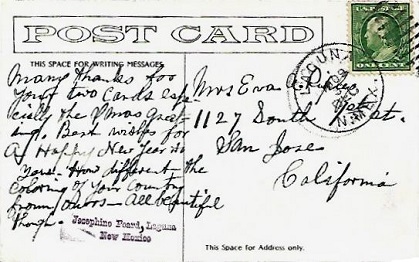 POST CARD
THIS SPACE FOR WRITING MESSAGES
Many thanks for
your two cards espe-
cially the Xmas greet-
ing. Best wishes for
A Happy New Year to
you. How different the
coloring of your country
from ours - All beautiful
though.
Josephine Foard, Laguna
New Mexico
U.S. POSTAGE
LAGUNA
N. MEX.
Mrs Eva
1127 South St.
San Jose
California
This Space for Address only.